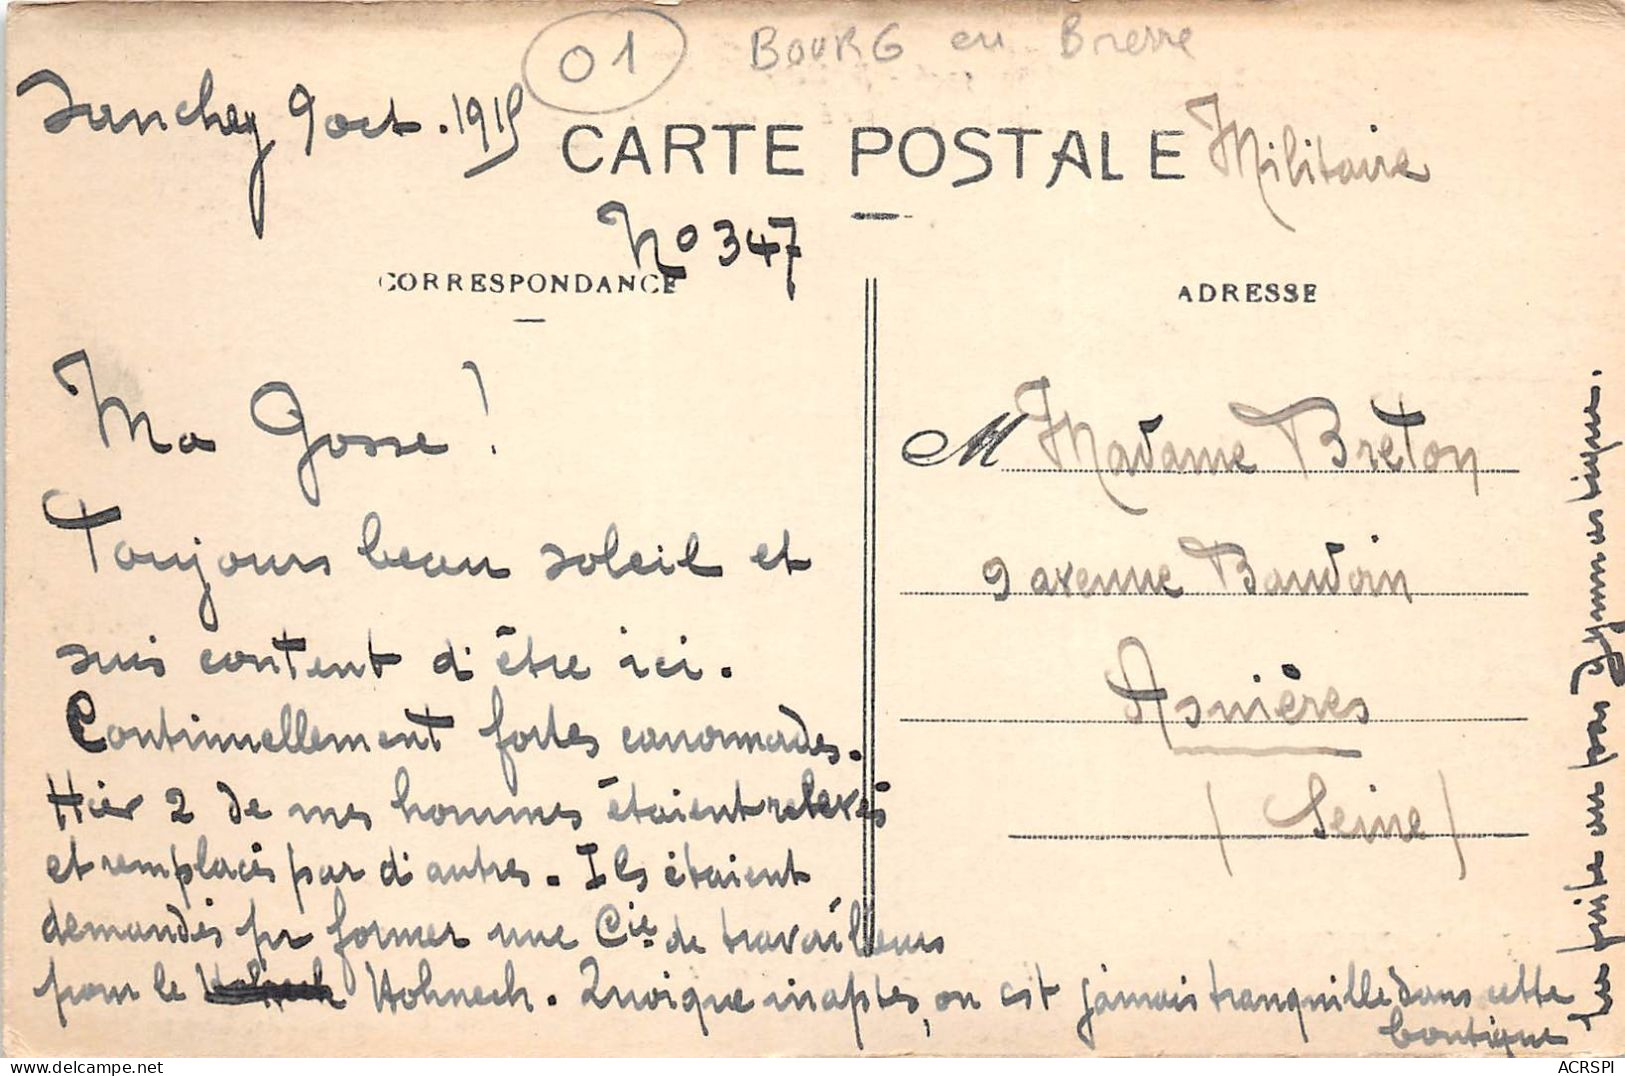 01 BOURG en Bresse
Sanchey 9 oct. 1915
CARTE POSTALE Militaire
No 347
CORRESPONDANCE
Ma Gosse !
Toujours beau soleil et
suis content d'être ici.
Continuellement fortes canonnades.
Hier 2 de mes hommes étaient relevés
et remplacés par d'autres. Ils étaient
demandés pr former une Cie de travailleurs
pour le Hohnech. Quoique inaptes, on est jamais tranquille dans cette
boutique
ADRESSE
M Madame Breton
9 avenue Baudoin
Asnières
(Seine)
pas gymnastique.
ACRSPI